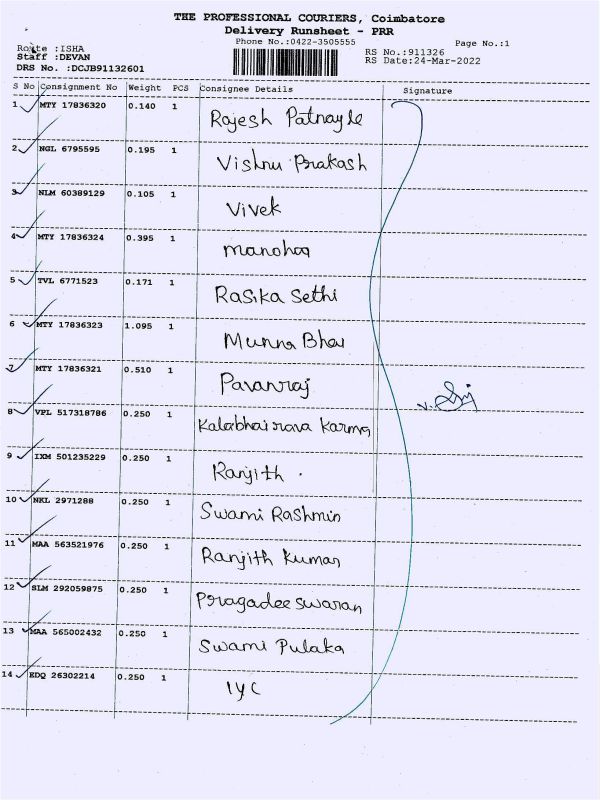 THE PROFESSIONAL COURIERS, Coimbatore
Delivery Runsheet - PRR
Phone No.:0422-3505555 Page No.:1
Route :ISHA RS No.:911326
Staff :DEVAN RS Date:24-Mar-2022
DRS No. :DCJB91132601
S No Consignment No Weight PCS Consignee Details Signature
1 MTY 17836320 0.140 1 Rajesh Patnayle
2 NGL 6795595 0.195 1 Vishnu Prakash
3 NLM 60389129 0.105 1 Vivek
4 MTY 17836324 0.395 1 manohoo
5 TVL 6771523 0.171 1 Rasika Sethi
6 MTY 17836323 1.095 1 Munna Bhai
7 MTY 17836321 0.510 1 Pavanraj
8 VPL 517318786 0.250 1 Kalabhairava Karma
9 IXM 501235229 0.250 1 Ranjith .
10 NKL 2971288 0.250 1 Swami Rashmin
11 MAA 563521976 0.250 1 Ranjith Kumar
12 SLM 292059875 0.250 1 Pragadeeswaran
13 MAA 565002432 0.250 1 Swami Pulaka
14 EDQ 26302214 0.250 1 IYC